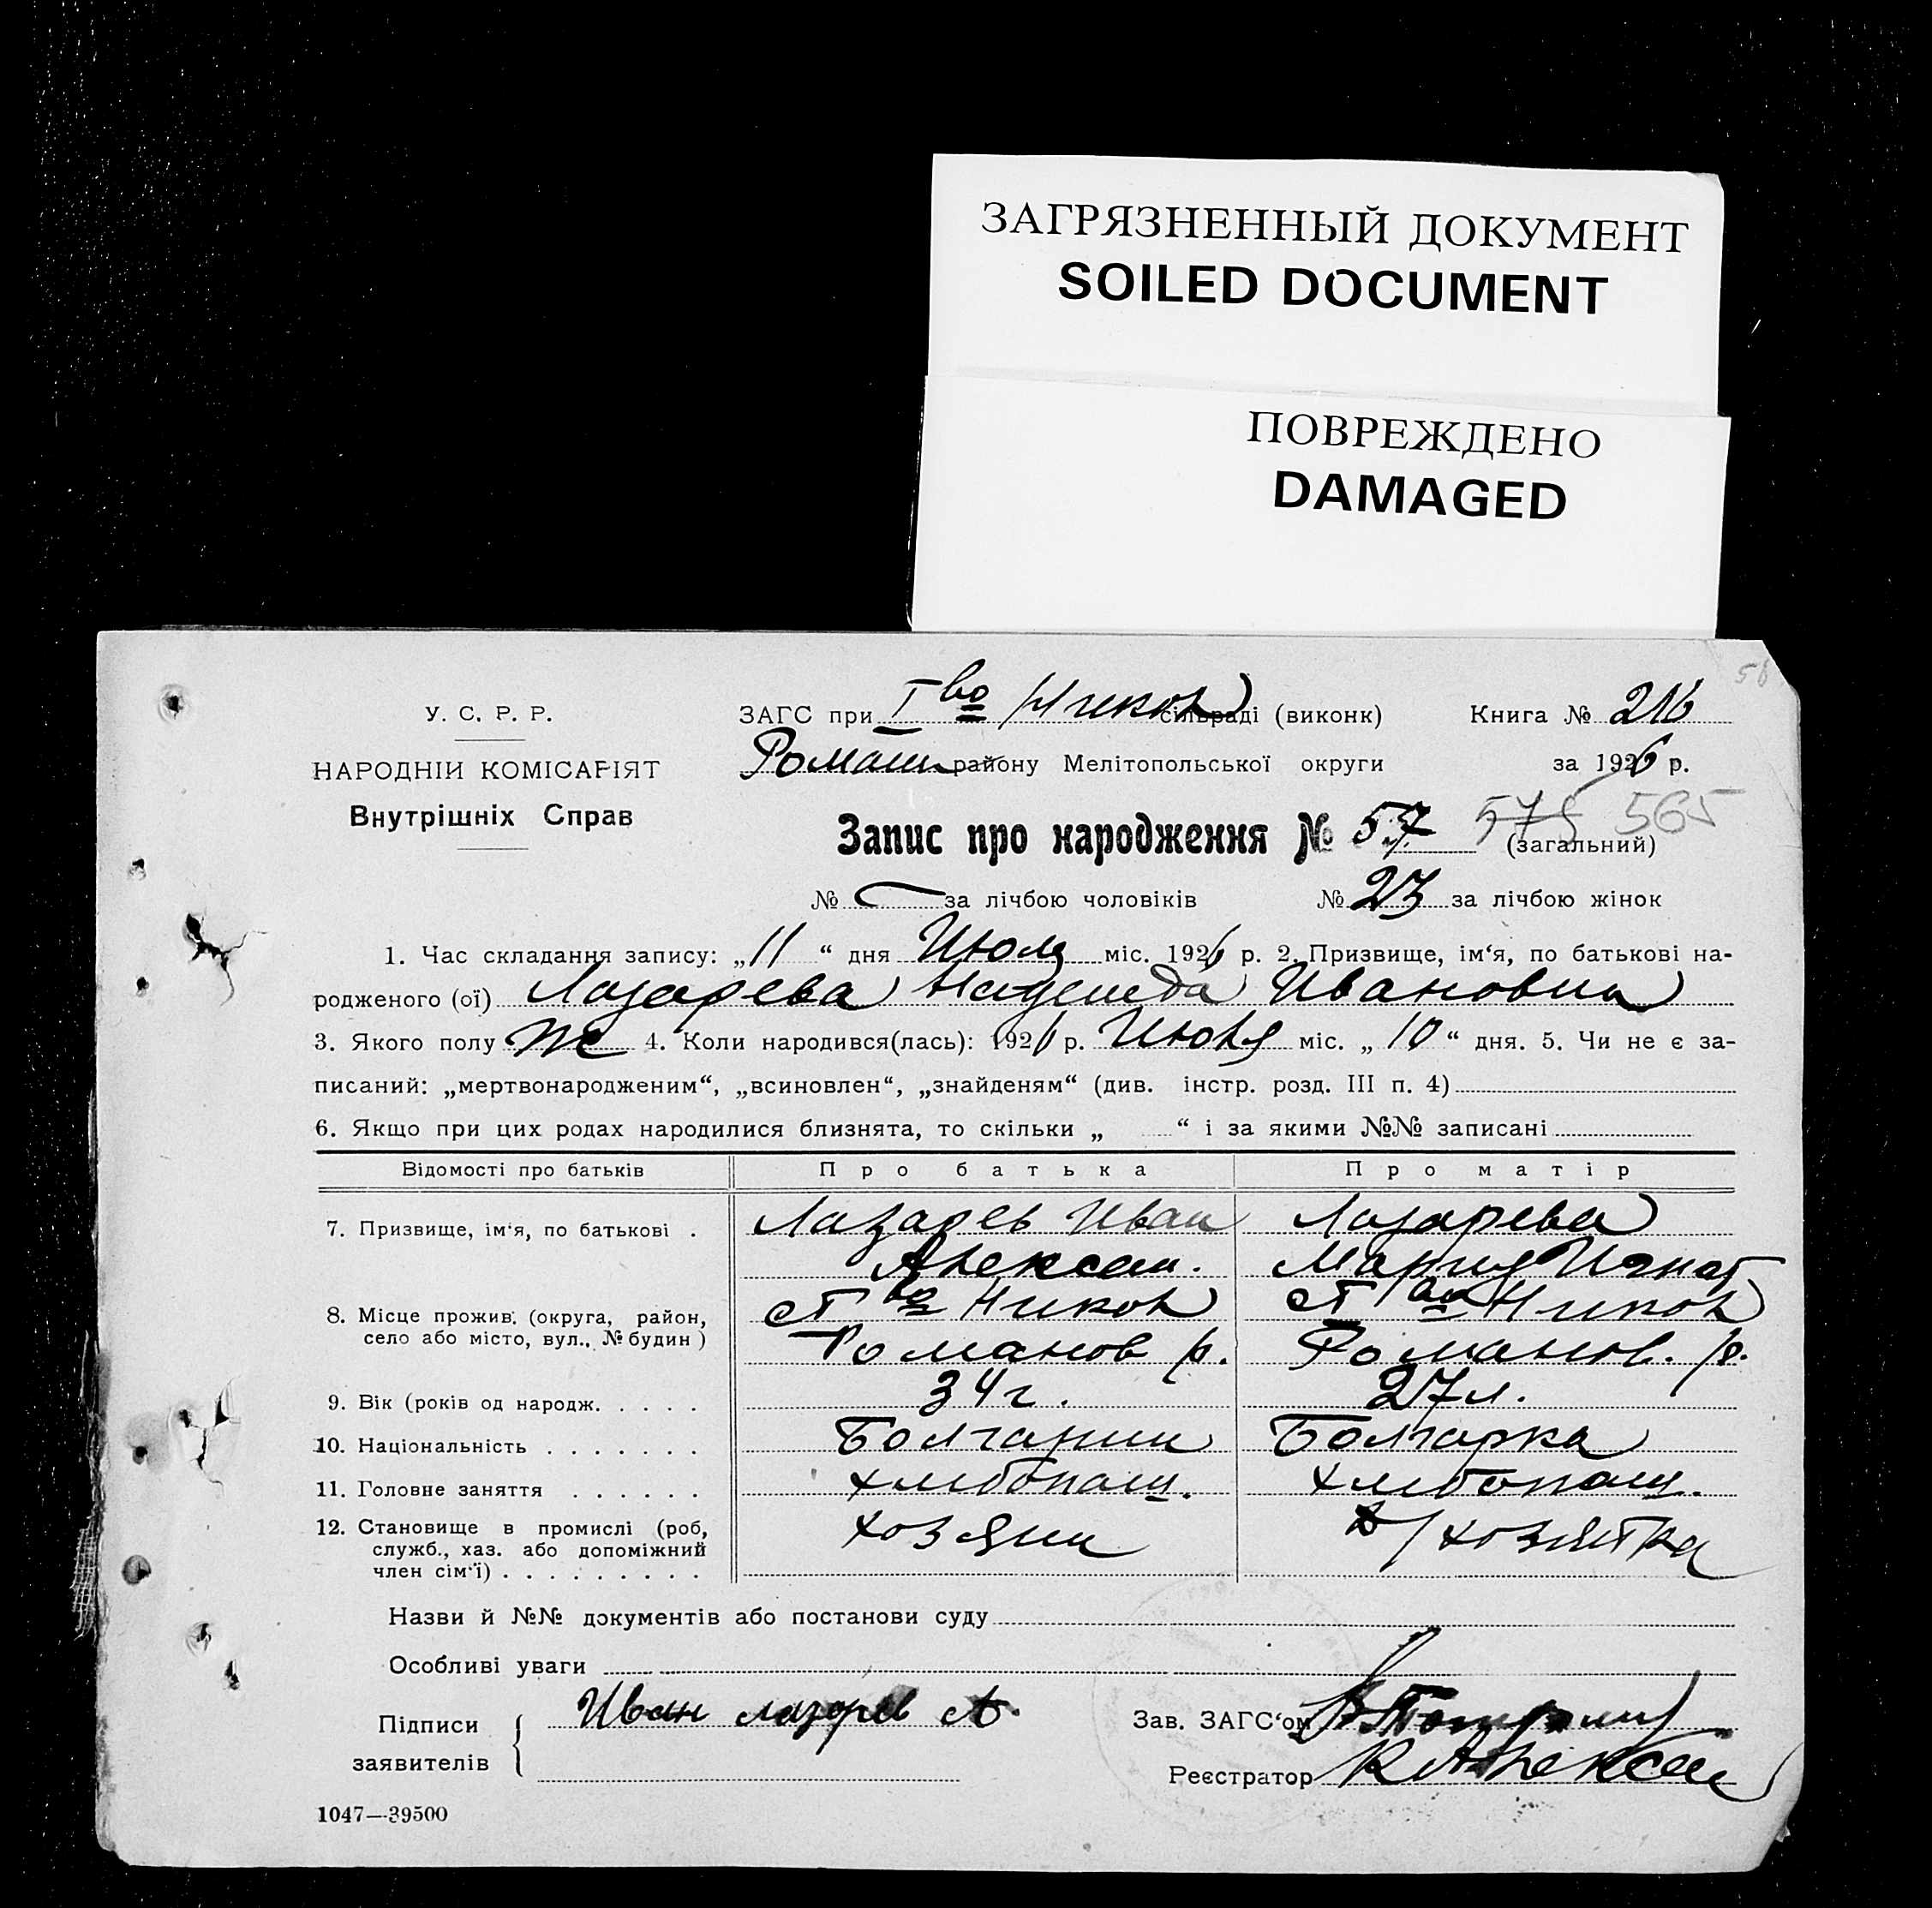 ЗАГРЯЗНЕННЫЙ ДОКУМЕНТ
SOILED DOCUMENT
ПОВРЕЖДЕНО
DAMAGED
У. С. Р. Р.
НАРОДНІЙ КОМІСАРІЯТ
Внутрішніх Справ
ЗАГС при Iво Никол сільраді (виконк) Книга № 216
Роман району Мелітопольської округи за 1926 р.
Запис про народження № 57 575 565
(загальний)
№ за лічбою чоловіків № 23 за лічбою жінок
1. Час складання запису: „11“ дня Июля міс. 1926 р. 2. Призвище, ім‘я, по батькові на-
родженого (ої) Лазарева Надежда Ивановна
3. Якого полу ж 4. Коли народився(лась): 1926 р. Июля міс. „10“ дня. 5. Чи не є за-
писаний: „мертвонародженим“, „всиновлен“, „знайденям“ (див. інстр. розд. III п. 4)
6. Якщо при цих родах народилися близнята, то скільки „ “ і за якими №№ записані
Відомості про батьків Про батька Про матір
7. Призвище, ім‘я, по батькові . Лазарев Иван Лазарева
Алексан. Мария Игнат
8. Місце прожив. (округа, район, Iво Никол Iво Никол
село або місто, вул., № будин ) Романов р. Романов. р.
9. Вік (років од народж. . . . . 34 г. 27 л.
10. Національність . . . . . . . Болгарин Болгарка
11. Головне заняття . . . . . . хлибопаш. хлибопаш.
12. Становище в промислі (роб, хозяин д/хозяйка
служб., хаз. або допоміжний
член сім‘ї) . . . . . . . . .
Назви й №№ документів або постанови суду
Особливі уваги
Підписи Иван лазарев А. Зав. ЗАГС‘ом
заявителів Реєстратор К Алексан
1047—39500